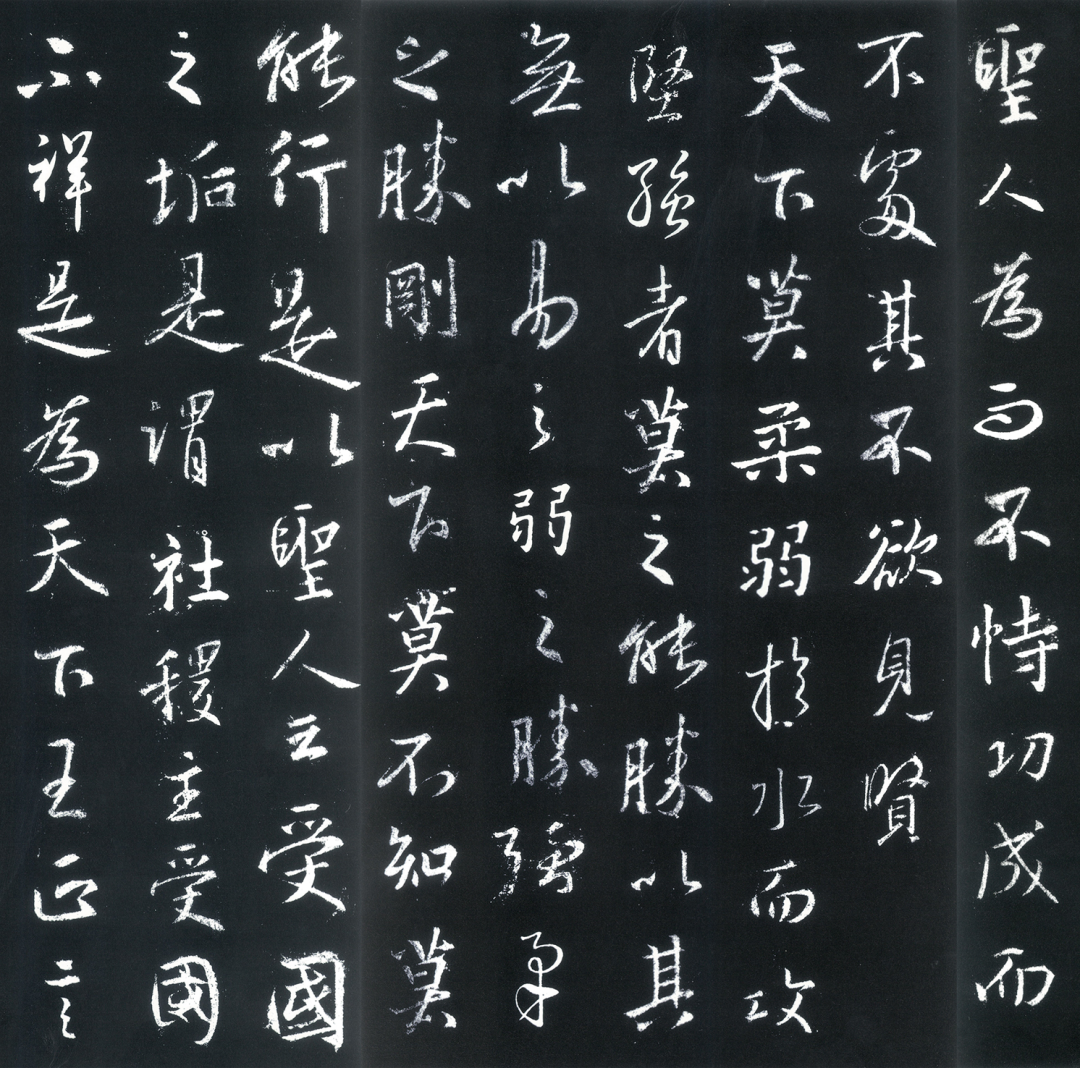 聖人為而不恃功成而
不處其不欲見賢
天下莫柔弱於水而攻
堅強者莫之能勝以其
無以易之弱之勝強柔
之勝剛天下莫不知莫
能行是以聖人云受國
之垢是謂社稷主受國
不祥是為天下王正言